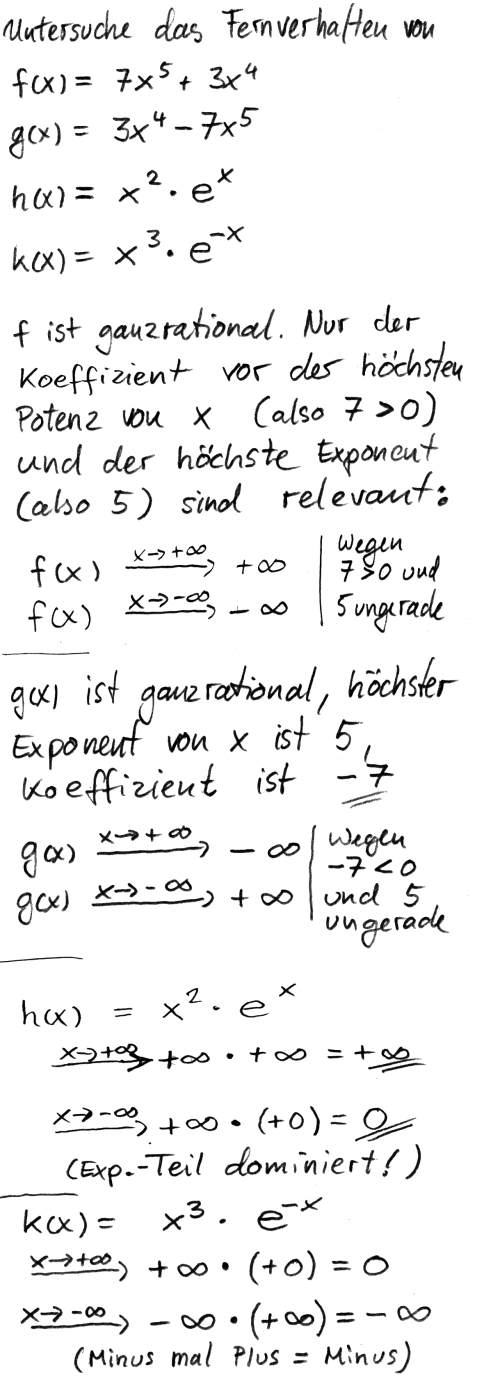 Untersuche das Fernverhalten von
f(x) = 7x⁵ + 3x⁴
g(x) = 3x⁴ - 7x⁵
h(x) = x² · eˣ
k(x) = x³ · e⁻ˣ
f ist ganzrational. Nur der
Koeffizient vor der höchsten
Potenz von x (also 7 > 0)
und der höchste Exponent
(also 5) sind relevant:
f(x) —x→+∞→ +∞ | wegen 7>0 und
f(x) —x→-∞→ -∞ | 5 ungerade
g(x) ist ganzrational, höchster
Exponent von x ist 5,
Koeffizient ist -7
g(x) —x→+∞→ -∞ | wegen -7<0
g(x) —x→-∞→ +∞ | und 5 ungerade
h(x) = x² · eˣ
—x→+∞→ +∞ · +∞ = +∞
—x→-∞→ +∞ · (+0) = 0
(Exp.-Teil dominiert!)
k(x) = x³ · e⁻ˣ
—x→+∞→ +∞ · (+0) = 0
—x→-∞→ -∞ · (+∞) = -∞
(Minus mal Plus = Minus)